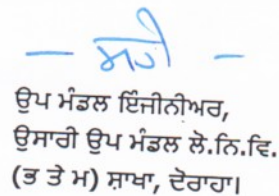 — ਸਹੀ —
ਉਪ ਮੰਡਲ ਇੰਜੀਨੀਅਰ,
ਉਸਾਰੀ ਉਪ ਮੰਡਲ ਲੋ.ਨਿ.ਵਿ.
(ਭ ਤੇ ਮ) ਸ਼ਾਖਾ, ਦੋਰਾਹਾ।